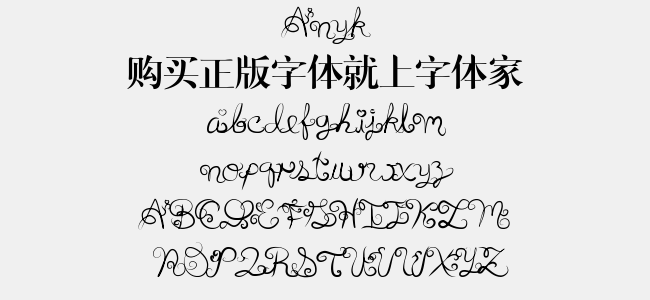 Arnyk
购买正版字体就上字体家
abcdefghijklm
nopqrstuvwxyz
ABCDEFGHIJKLM
NOPQRSTUVWXYZ